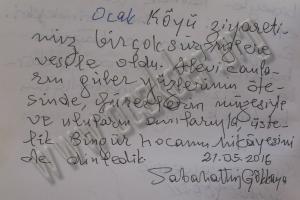 Ocak Köyü ziyareti
miz birçok sürprizlere
vesile oldu. Alevi canla
rın güler yüzlerinin öte
sinde, türkülerin
ve uluların anılarıyla üste
lik Bingür hocanın hikâyesini
de dinledik. 21.05.2016
Sabahattin Gökkaya